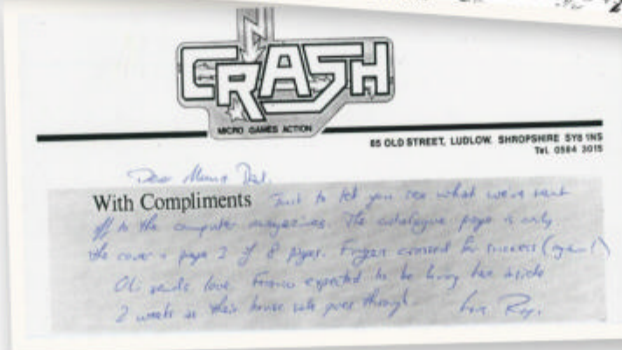 CRASH
MICRO GAMES ACTION
85 OLD STREET, LUDLOW, SHROPSHIRE SY8 1NS
Tel. 0584 3015
Dear Mum & Dad.
With Compliments Just to let you see what we've sent
off to the computer magazines. The catalogue page is only
the cover & page 2 of 8 pages. Fingers crossed for success (again!)
Oli sends love. Franco expected to be living here inside
2 weeks as their house sale goes through. Love Roy.